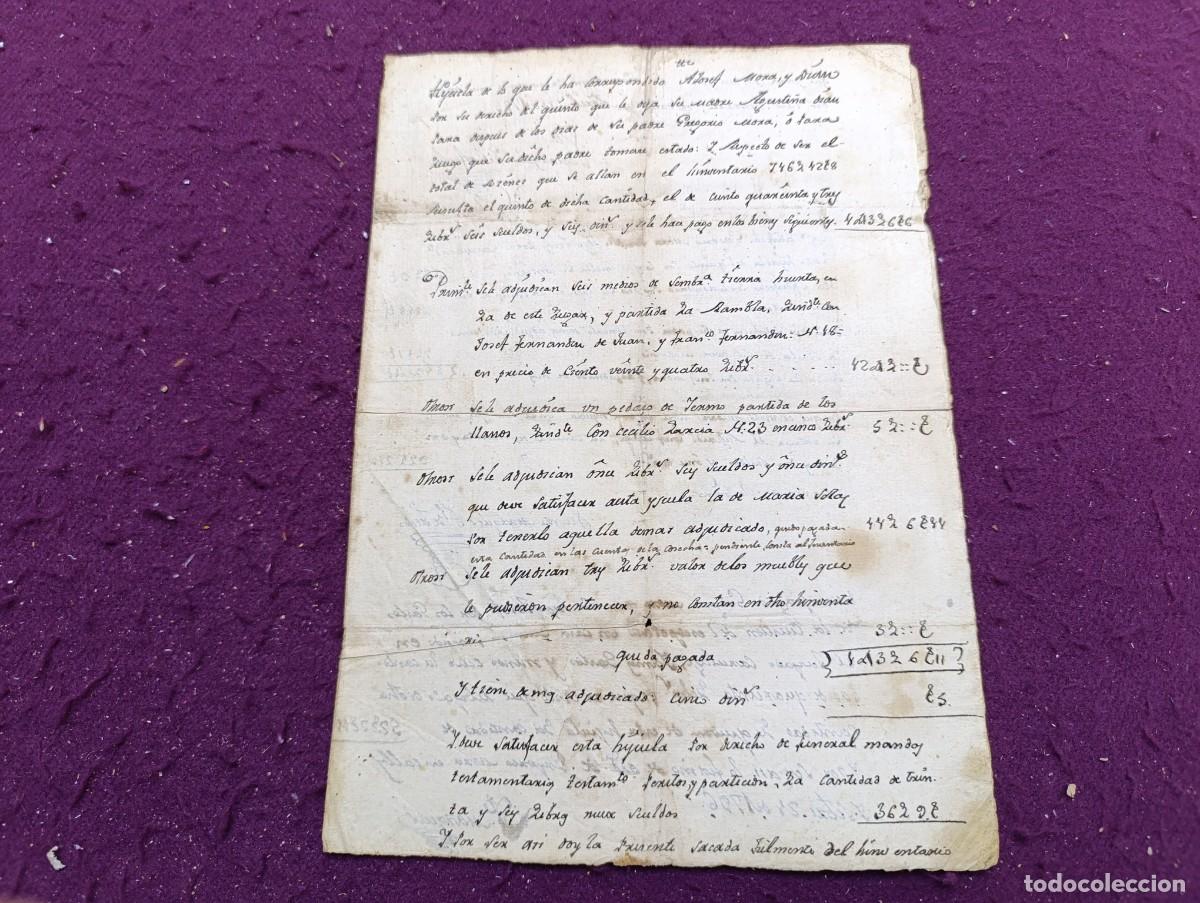 Hijuela de lo que le ha correspondido A Josef Mora, y Dian
por su derecho del quinto que le deja su madre Agustina Dian
para despues de los dias de su padre Gregorio Mora, o para
luego que su dicho padre tomare estado: Y Respecto de ser el
total de Bienes que se allan en el hinventario
resulta el quinto de dicha cantidad, el de ciento quarenta y tres
Libr.s seis sueldos, y seis din.s y se le hace pago en los bienes siguientes.
Prim.te se le adjudican seis medios de sembr.a tierra huerta, en
la de este Lugar, y partida La Rambla, Lind.te con
Josef Fernandez de Juan, y Fran.co Fernandez: N. 18=
en precio de Ciento veinte y quatro Libr.s
Otrosi Se le adjudica un pedazo de Termo partida de los
llanos, Lind.te Con Cecilio Garcia N. 23 en cinco Libr.s 5L::S
Otrosi Se le adjudican once Libr.s seis sueldos y once din.s
que deve satisfacer a esta yjuela la de Maria
por tenerlo aquella demas adjudicado, queda pagada
esta cantidad en las cuentas de la cosecha pendiente consta al Inventario
Otrosi Se le adjudican tres Libr.s valor de los muebles que
le pudieron pertenecer, y no constan en otro hinventa
rio 3L::S
queda pagada
Y tiene demas adjudicado: cinco din.s S5.
Y deve satisfacer esta hijuela por derecho de funeral mandas
testamentarias testam.to peritos, y particion, La cantidad de trein
ta y seis Libras nueve sueldos 36L9.S
Y Por ser asi doy la presente sacada fielmente del hinventario
todocoleccion